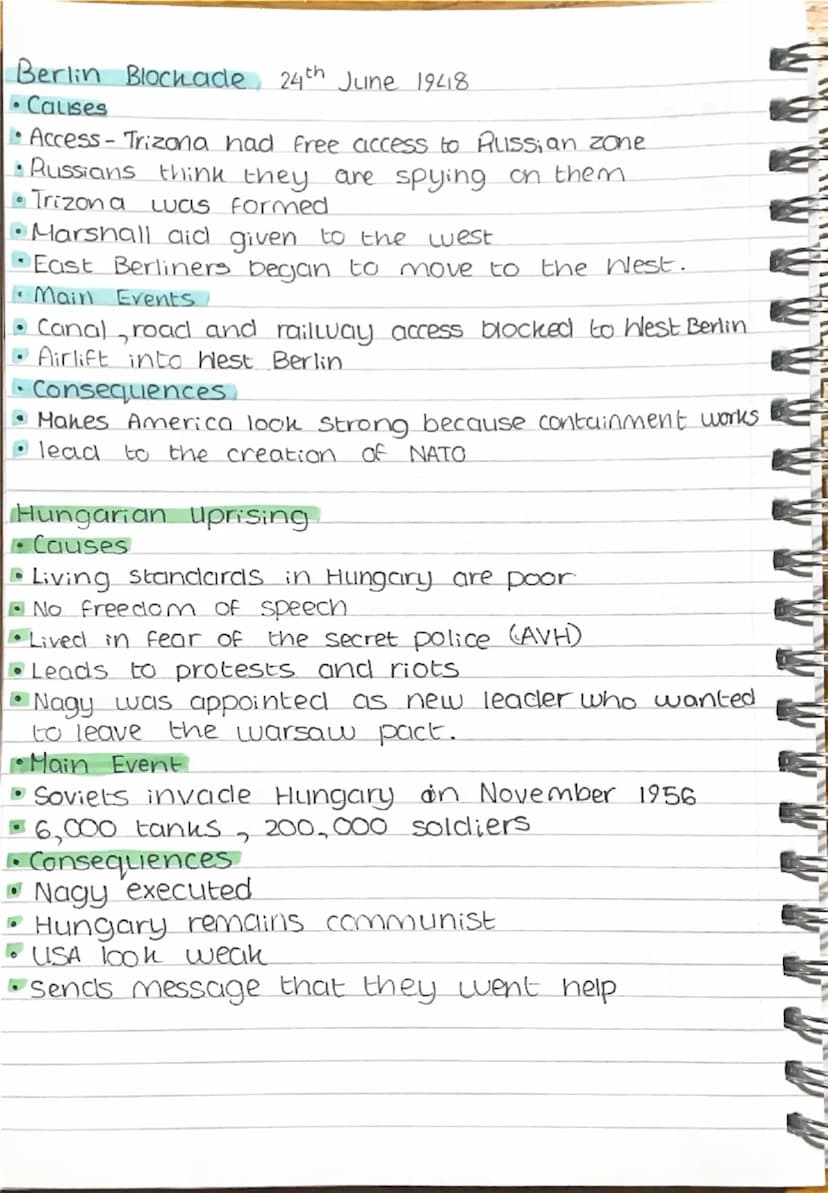 Berlin Blockade 24th June 1948
• Causes
• Access - Trizona had free access to Russian zone
• Russians think they are spying on them
• Trizona was formed
• Marshall aid given to the west
• East Berliners began to move to the West.
• Main Events
• Canal, road and railway access blocked to West Berlin
• Airlift into West Berlin
• Consequences
• Makes America look strong because containment works
• lead to the creation of NATO
Hungarian Uprising
• Causes
• Living standards in Hungary are poor
• No freedom of speech
• Lived in fear of the secret police (AVH)
• Leads to protests and riots
• Nagy was appointed as new leader who wanted
to leave the warsaw pact.
• Main Event
• Soviets invade Hungary in November 1956
• 6,000 tanks, 200,000 soldiers
• Consequences
• Nagy executed
• Hungary remains communist
• USA look weak
• Sends message that they wont help